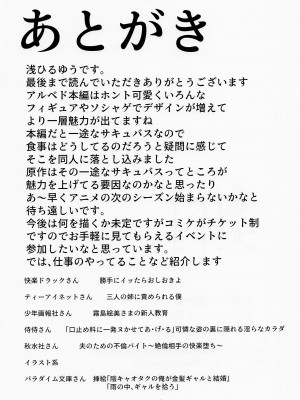 あとがき
浅ひるゆうです。
最後まで読んでいただきありがとうございます
アルベド本編はホント可愛くいろんな
フィギュアやソシャゲでデザインが増えて
より一層魅力が出てますね
本編だと一途なサキュバスなので
食事はどうしてるのだろうと疑問に感じて
そこを同人に落とし込みました
原作はその一途なサキュバスってところが
魅力を上げてる要因なのかなと思ったり
あ〜早くアニメの次のシーズン始まらないかなと
待ち遠しいです。
今後は何を描くか未定ですがコミケがチケット制
ですのでお手軽に見てもらえるイベントに
参加したいなと思っています。
では、仕事のやってることなど紹介します
快楽ドラックさん 勝手にイッたらおしおきよ
ティーアイネットさん 三人の姉に責められる僕
少年画報社さん 霧島絵美さまの新人教育
侍侍さん 「口止め料に一発ヌかせてあ・げ・る」可憐な姿の裏に隠れる淫らなカラダ
秋水社さん 夫のための不倫バイト〜絶倫相手の快楽堕ち〜
イラスト系
パラダイム文庫さん 挿絵「陰キャオタクの俺が金髪ギャルと結婚」
「雨の中、ギャルを拾う」